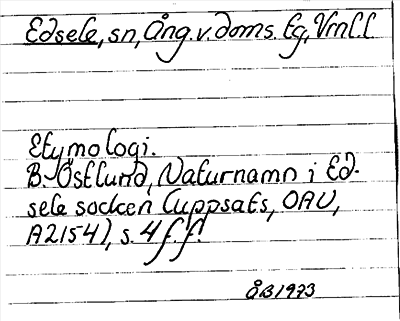 Edsele, sn, Ång. v. doms. tg, Vrnll
Etymologi.
B. Östlund, Naturnamn i Ed-
sele socken (uppsats, OAU,
A2154), s. 4 f.f.
ÅB1973